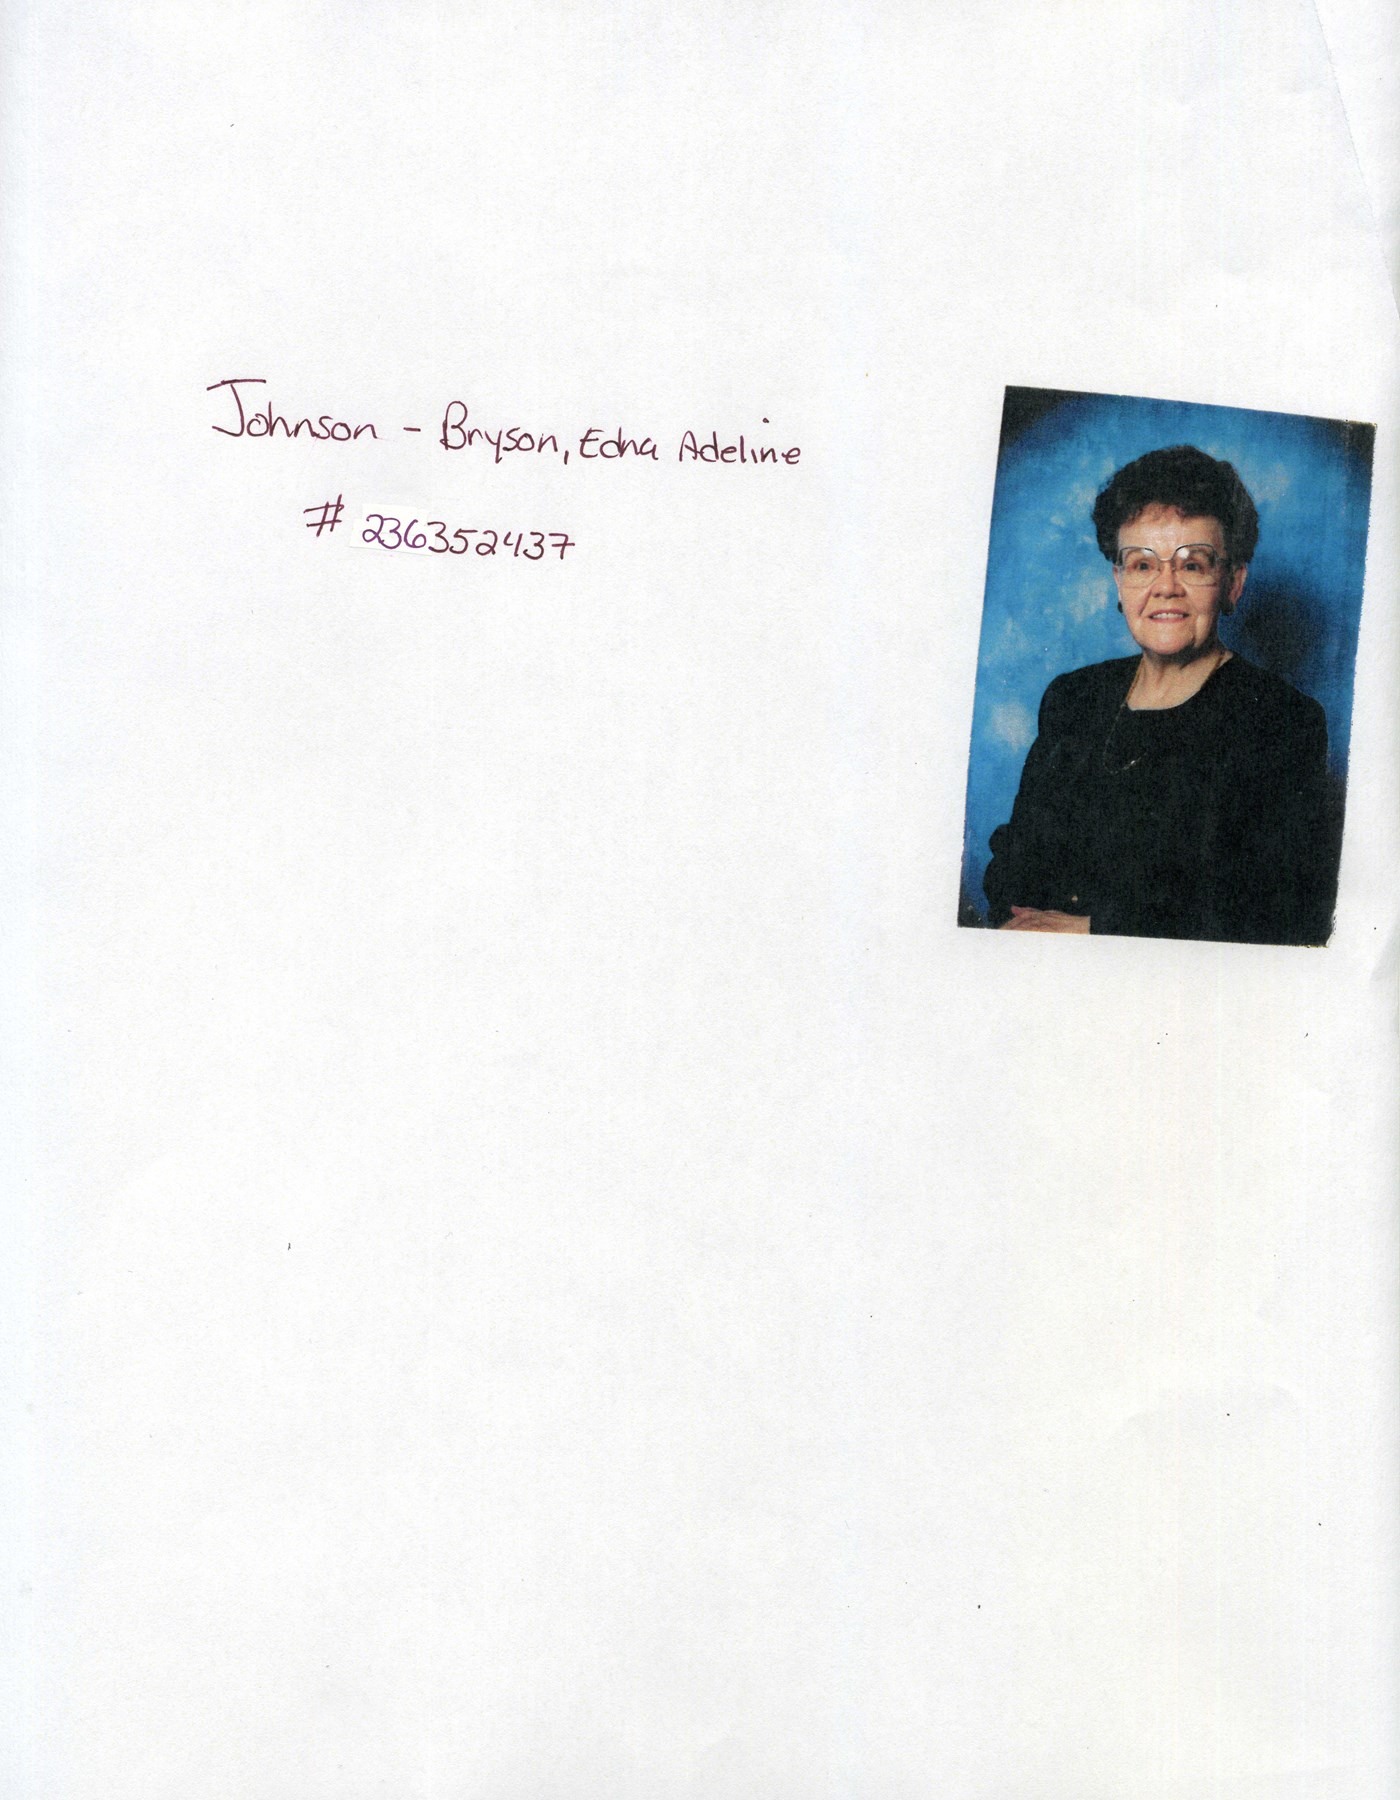 Johnson - Bryson, Edna Adeline
# 2363352437